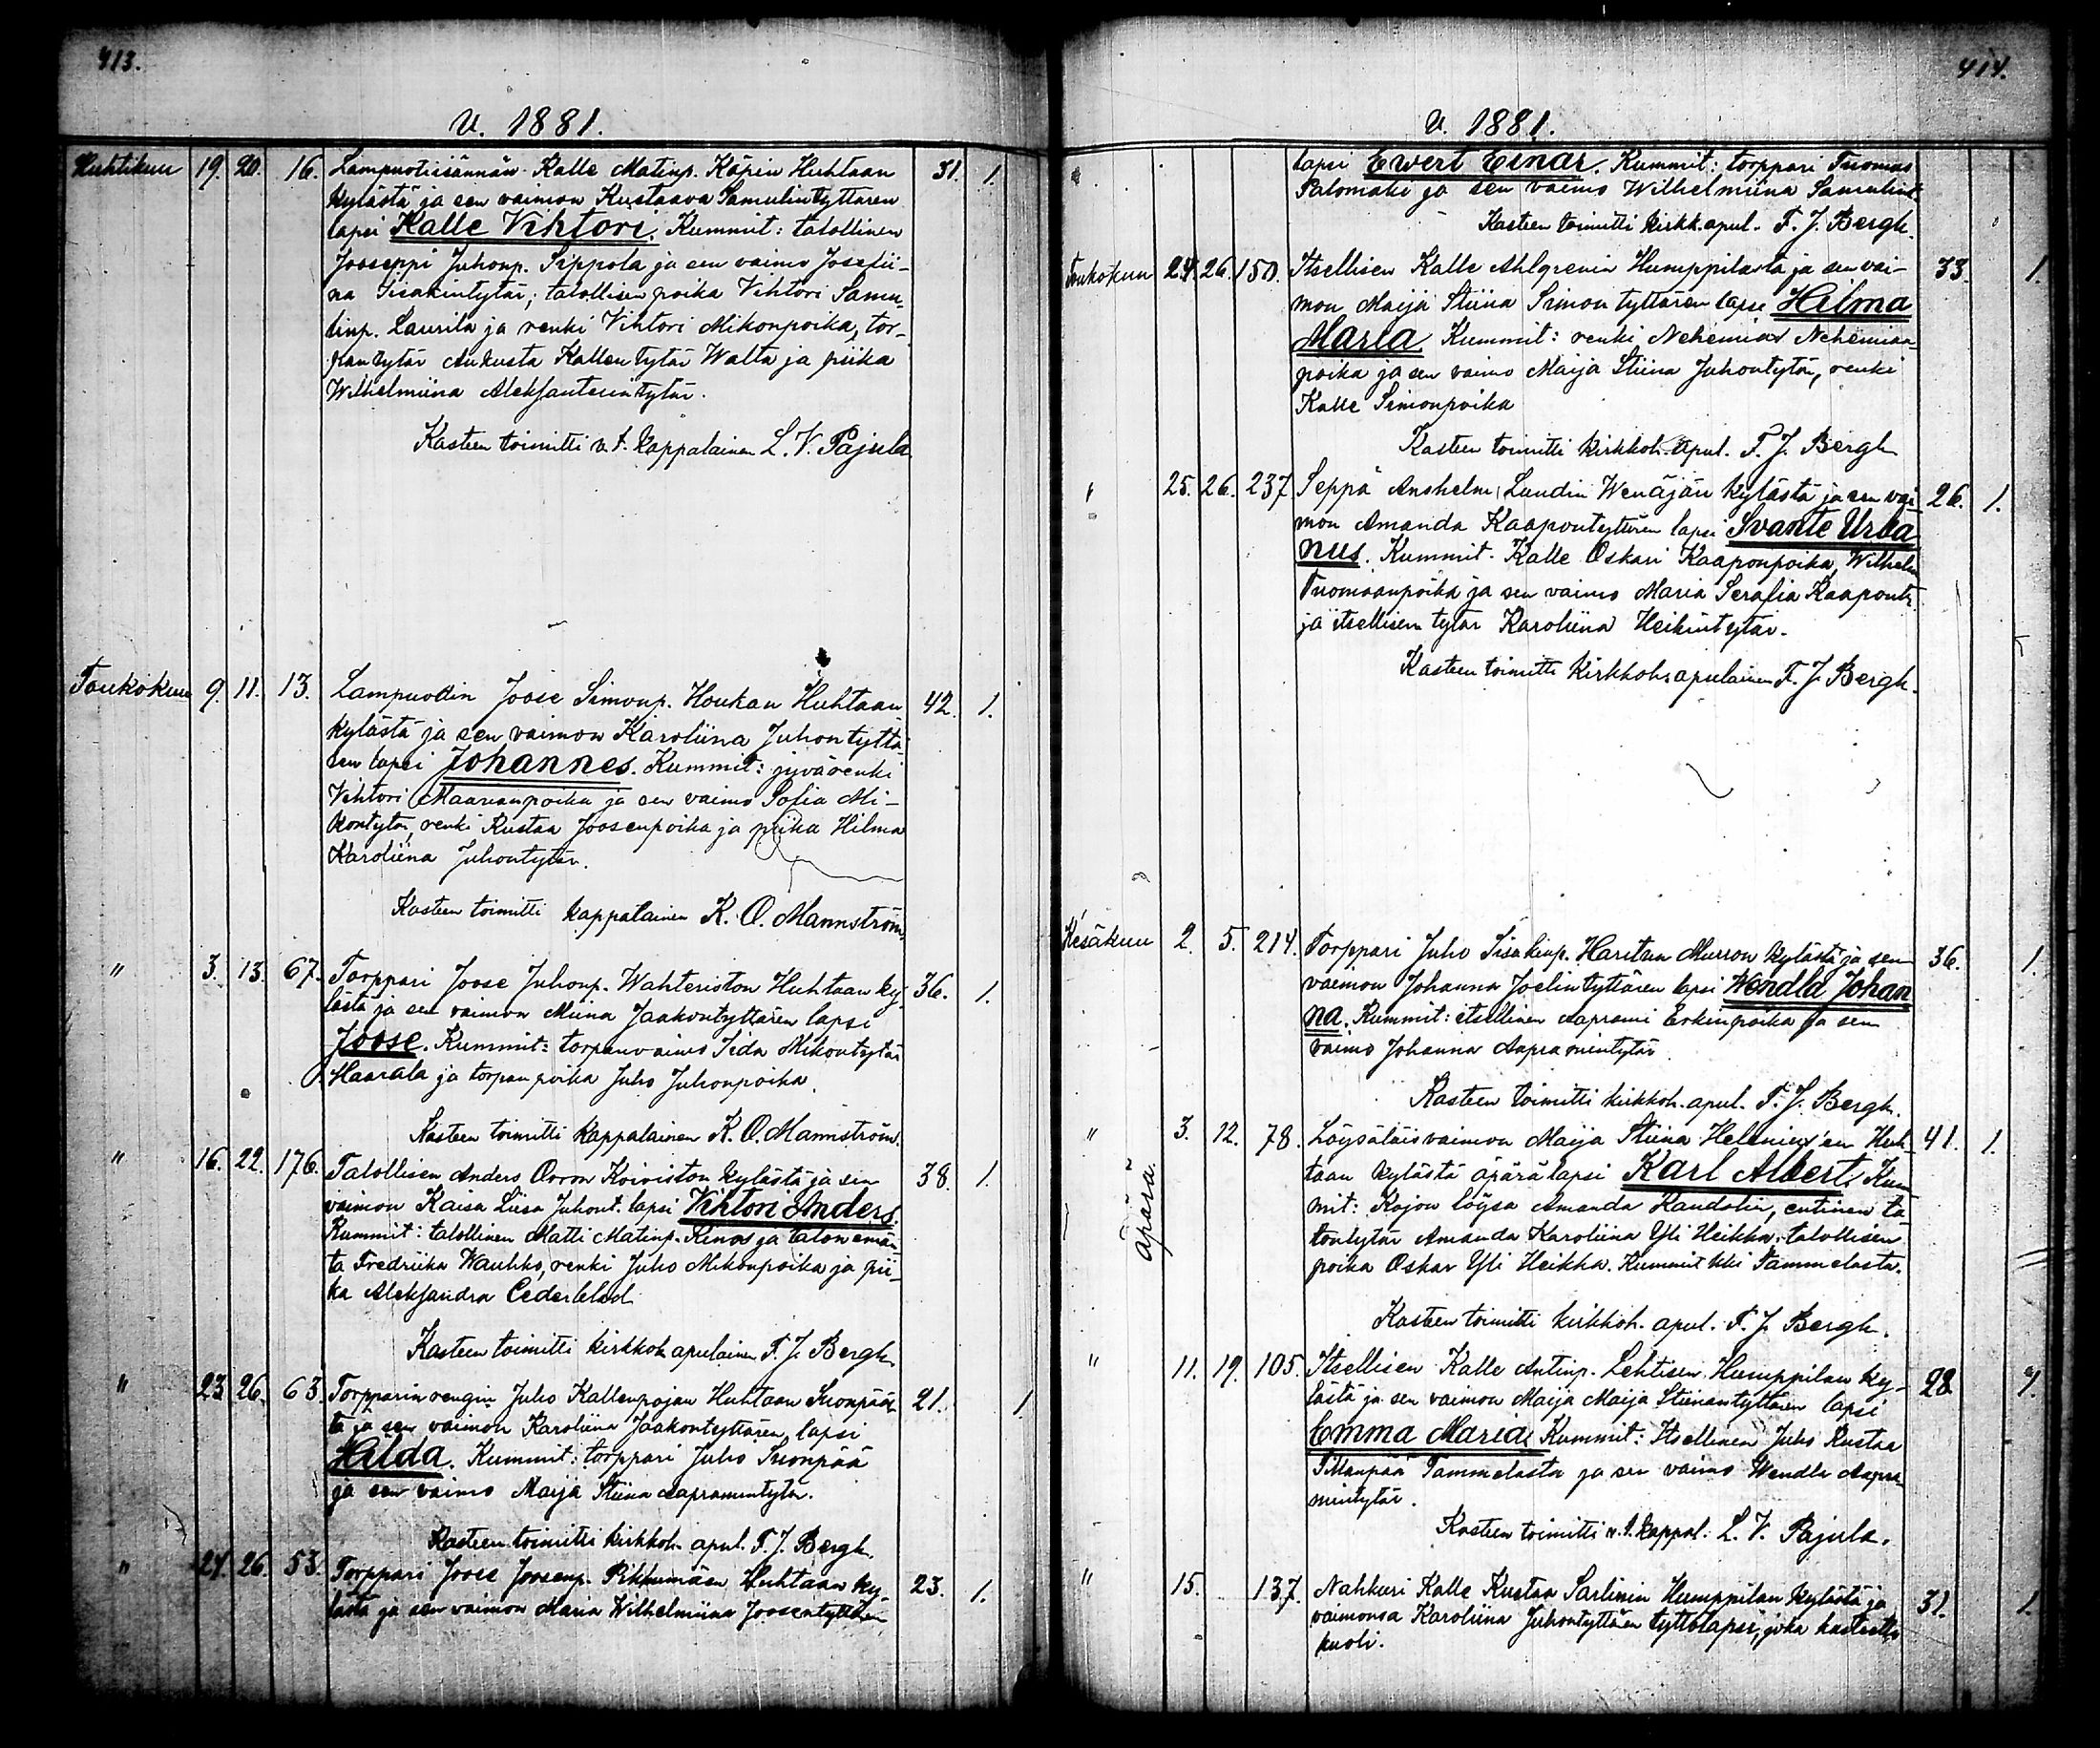 413.
V. 1881.
Huhtikuu 19. 20. 16. Lampuotiisännän Kalle Matinp. Käpin Huhtaan 31. 1.
kylästä ja sen vaimon Kustaava Samulintyttären
lapsi Kalle Vihtori. Kummit: talollinen
Jooseppi Juhonp. Sippola ja sen vaimo Josefii-
na Iisakintytär, talollisen poika Vihtori Samu-
linp. Laurila ja renki Vihtori Mikonpoika, tor-
pantytär Aukusta Kallentytär Walta ja piika
Wilhelmiina Aleksanterintytär.
Kasteen toimitti v.t. kappalainen L. V. Pajula
Toukokuu 9. 11. 13. Lampuodin Joose Simonp. Houkan Huhtaan 42. 1.
kylästä ja sen vaimon Karoliina Juhontyttä-
ren lapsi Johannes. Kummit: jyvärenki
Vihtori Maarianpoika ja sen vaimo Sofia Mi-
kontytär, renki Kustaa Joosenpoika ja piika Hilma
Karoliina Juhontytär.
Kasteen toimitti kappalainen K. O. Mannström.
" 3. 13. 67. Torppari Joose Juhonp. Wahteriston Huhtaan ky- 36. 1.
lästä ja sen vaimon Miina Jaakontyttären lapsi
Joose. Kummit: torpanvaimo Iida Mikontytär
Haarala ja torpan poika Juho Juhonpoika.
Kasteen toimitti kappalainen K. O. Mannström.
" 16. 22. 176. Talollisen Anders Orron Koiviston kylästä ja sen 38. 1.
vaimon Kaisa Liisa Juhont. lapsi Vihtori Anders.
Kummit: talollinen Matti Matinp. Rinos ja talon emän-
tä Fredriika Wauhko, renki Juho Mikonpoika ja pii-
ka Aleksandra Cederblad.
Kasteen toimitti kirkkoh. apulainen F. J. Bergh.
" 23. 26. 63. Torpparin rengin Juho Kallenpojan Huhtaan Suonpääs- 21. 1.
tä ja sen vaimon Karoliina Jaakontyttären lapsi
Hilda. Kummit: torppari Juho Suonpää
ja sen vaimo Maija Stiina Aapramintytär.
Kasteen toimitti kirkkoh. apul. F. J. Bergh.
" 24. 26. 53. Torppari Joose Joosenp. Pikkumäen Huhtaan ky- 23. 1.
lästä ja sen vaimon Maria Wilhelmiina Joosentyttären
414.
V. 1881.
lapsi Ewert Einar. Kummit: torppari Tuomas
Palomäki ja sen vaimo Wilhelmiina Samulint.
Kasteen toimitti kirkk. apul. F. J. Bergh.
Toukokuu 24. 26. 150. Itsellisen Kalle Ahlgrenin Humppilasta ja sen vai- 33. 1.
mon Maija Stiina Simontyttären lapsi Hilma
Maria. Kummit: renki Nehemias Nehemian-
poika ja sen vaimo Maija Stiina Juhontytär, renki
Kalle Simonpoika
Kasteen toimitti kirkkoh. apul. F. J. Bergh
" 25. 26. 237. Seppä Anshelm Lundin Wenäjän kylästä ja sen vai- 26. 1.
mon Amanda Kaapontyttären lapsi Svante Urba
nus. Kummit. Kalle Oskari Kaaponpoika, Wilhelm
Tuomaanpoika ja sen vaimo Maria Serafia Kaapont.
ja itsellisen tytär Karoliina Heikintytär.
Kasteen toimitti kirkkoh. apulainen F. J. Bergh.
Kesäkuu 2. 5. 214. Torppari Juho Iisakinp. Haritun Murron kylästä ja sen 36. 1.
vaimon Johanna Joelintyttären lapsi Wendla Johan
na. Kummit: itsellinen Aaprami Erkinpoika ja sen
vaimo Johanna Aapramintytär.
Kasteen toimitti kirkkoh. apul. F. J. Bergh.
" 3. 12. 78. Löysäläisvaimon Maija Stiina Helenius'en Huh- 41. 1.
Äpärä.
taan kylästä äpärälapsi Karl Albert. Kum
mit: Kojon löysä Amanda Randolin, entinen ta-
lontytär Amanda Karoliina Yli Heikka, talollisen
poika Oskar Yli Heikka. Kummit kki Tammelasta.
Kasteen toimitti kirkkoh. apul. F. J. Bergh.
" 11. 19. 105. Itsellisen Kalle Antinp. Lehtisen Humppilan ky- 28. 1.
lästä ja sen vaimon Maija Maija Stiinantyttären lapsi
Emma Maria. Kummit: Itsellinen Juho Kustaa
Tammelasta ja sen vaimo Wendla Aapra-
mintytär.
Kasteen toimitti v.t. kappal. L. V. Pajula.
" 15. 137. Nahkuri Kalle Kustaa Sarlinin Humppilan kylästä ja 31. 1.
vaimonsa Karoliina Juhontyttären tyttölapsi, joka kasteetta
kuoli.